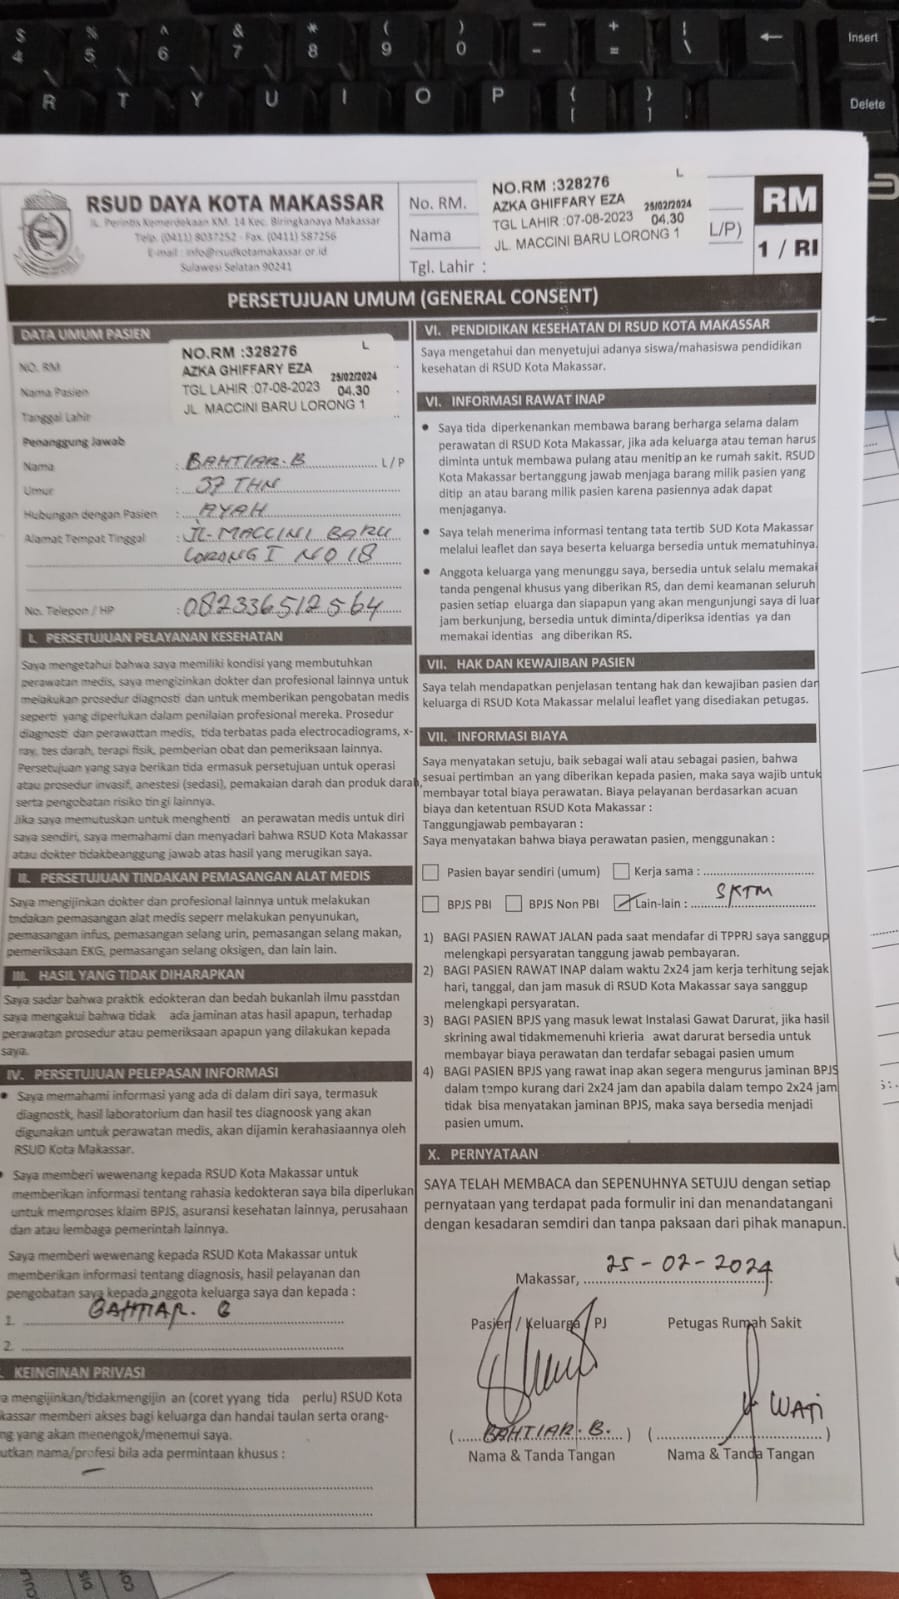 $ 4 % 5 ^ 6 & 7 * 8 ( 9 ) 0 — - + = | \ ← Insert
R T Y U I O P { [ } ] Delete
RSUD DAYA KOTA MAKASSAR
JL. Perintis Kemerdekaan KM. 14 Kec. Biringkanaya Makassar
Telp. (0411) 8037252 - Fax. (0411) 587256
E-mail : info@rsudkotamakassar.or.id
Sulawesi Selatan 90241
No. RM.
Nama
Tgl. Lahir :
L
NO.RM :328276
AZKA GHIFFARY EZA 25/02/2024
TGL LAHIR :07-08-2023 04.30
JL. MACCINI BARU LORONG 1
L/P)
RM
1 / RI
PERSETUJUAN UMUM (GENERAL CONSENT)
DATA UMUM PASIEN
NO. RM
Nama Pasien
Tanggal Lahir
NO.RM :328276 L
AZKA GHIFFARY EZA 25/02/2024
TGL LAHIR :07-08-2023 04.30
JL MACCINI BARU LORONG 1
Penanggung Jawab
Nama : BAHTIAR.B L / P
Umur : 37 THN
Hubungan dengan Pasien : AYAH
Alamat Tempat Tinggal : JL. MACCINI BARU
LORONG I NO 18
No. Telepon / HP : 082336512564
I. PERSETUJUAN PELAYANAN KESEHATAN
Saya mengetahui bahwa saya memiliki kondisi yang membutuhkan
perawatan medis, saya mengizinkan dokter dan profesional lainnya untuk
melakukan prosedur diagnosti dan untuk memberikan pengobatan medis
seperti yang diperlukan dalam penilaian profesional mereka. Prosedur
diagnosti dan perawattan medis, tida terbatas pada electrocadiograms, x-
ray, tes darah, terapi fisik, pemberian obat dan pemeriksaan lainnya.
Persetujuan yang saya berikan tida ermasuk persetujuan untuk operasi
atau prosedur invasif, anestesi (sedasi), pemakaian darah dan produk darah,
serta pengobatan risiko tin gi lainnya.
Jika saya memutuskan untuk menghenti an perawatan medis untuk diri
saya sendiri, saya memahami dan menyadari bahwa RSUD Kota Makassar
atau dokter tidakbeanggung jawab atas hasil yang merugikan saya.
II. PERSETUJUAN TINDAKAN PEMASANGAN ALAT MEDIS
Saya mengijinkan dokter dan profesional lainnya untuk melakukan
tndakan pemasangan alat medis seperr melakukan penyunukan,
pemasangan infus, pemasangan selang urin, pemasangan selang makan,
pemeriksaan EKG, pemasangan selang oksigen, dan lain lain.
III. HASIL YANG TIDAK DIHARAPKAN
Saya sadar bahwa praktik edokteran dan bedah bukanlah ilmu passtdan
saya mengakui bahwa tidak ada jaminan atas hasil apapun, terhadap
perawatan prosedur atau pemeriksaan apapun yang dilakukan kepada
saya.
IV. PERSETUJUAN PELEPASAN INFORMASI
• Saya memahami informasi yang ada di dalam diri saya, termasuk
diagnostk, hasil laboratorium dan hasil tes diagnoosk yang akan
digunakan untuk perawatan medis, akan dijamin kerahasiaannya oleh
RSUD Kota Makassar.
• Saya memberi wewenang kepada RSUD Kota Makassar untuk
memberikan informasi tentang rahasia kedokteran saya bila diperlukan
untuk memproses klaim BPJS, asuransi kesehatan lainnya, perusahaan
dan atau lembaga pemerintah lainnya.
Saya memberi wewenang kepada RSUD Kota Makassar untuk
memberikan informasi tentang diagnosis, hasil pelayanan dan
pengobatan saya kepada anggota keluarga saya dan kepada :
1. BAHTIAR. B
2.
KEINGINAN PRIVASI
a mengijinkan/tidakmengijin an (coret yyang tida perlu) RSUD Kota
kassar memberi akses bagi keluarga dan handai taulan serta orang-
ng yang akan menengok/menemui saya.
utkan nama/profesi bila ada permintaan khusus :
VI. PENDIDIKAN KESEHATAN DI RSUD KOTA MAKASSAR
Saya mengetahui dan menyetujui adanya siswa/mahasiswa pendidikan
kesehatan di RSUD Kota Makassar.
VI. INFORMASI RAWAT INAP
• Saya tida diperkenankan membawa barang berharga selama dalam
perawatan di RSUD Kota Makassar, jika ada keluarga atau teman harus
diminta untuk membawa pulang atau menitip an ke rumah sakit. RSUD
Kota Makassar bertanggung jawab menjaga barang milik pasien yang
ditip an atau barang milik pasien karena pasiennya adak dapat
menjaganya.
• Saya telah menerima informasi tentang tata tertib SUD Kota Makassar
melalui leaflet dan saya beserta keluarga bersedia untuk mematuhinya.
• Anggota keluarga yang menunggu saya, bersedia untuk selalu memakai
tanda pengenal khusus yang diberikan RS, dan demi keamanan seluruh
pasien setiap eluarga dan siapapun yang akan mengunjungi saya di luar
jam berkunjung, bersedia untuk diminta/diperiksa identias ya dan
memakai identias ang diberikan RS.
VII. HAK DAN KEWAJIBAN PASIEN
Saya telah mendapatkan penjelasan tentang hak dan kewajiban pasien dan
keluarga di RSUD Kota Makassar melalui leaflet yang disediakan petugas.
VII. INFORMASI BIAYA
Saya menyatakan setuju, baik sebagai wali atau sebagai pasien, bahwa
sesuai pertimban an yang diberikan kepada pasien, maka saya wajib untuk
membayar total biaya perawatan. Biaya pelayanan berdasarkan acuan
biaya dan ketentuan RSUD Kota Makassar :
Tanggungjawab pembayaran :
Saya menyatakan bahwa biaya perawatan pasien, menggunakan :
Pasien bayar sendiri (umum) Kerja sama :
BPJS PBI BPJS Non PBI Lain-lain : SKTM
1) BAGI PASIEN RAWAT JALAN pada saat mendafar di TPPRJ saya sanggup
melengkapi persyaratan tanggung jawab pembayaran.
2) BAGI PASIEN RAWAT INAP dalam waktu 2x24 jam kerja terhitung sejak
hari, tanggal, dan jam masuk di RSUD Kota Makassar saya sanggup
melengkapi persyaratan.
3) BAGI PASIEN BPJS yang masuk lewat Instalasi Gawat Darurat, jika hasil
skrining awal tidakmemenuhi krieria awat darurat bersedia untuk
membayar biaya perawatan dan terdafar sebagai pasien umum
4) BAGI PASIEN BPJS yang rawat inap akan segera mengurus jaminan BPJS
dalam tempo kurang dari 2x24 jam dan apabila dalam tempo 2x24 jam
tidak bisa menyatakan jaminan BPJS, maka saya bersedia menjadi
pasien umum.
X. PERNYATAAN
SAYA TELAH MEMBACA dan SEPENUHNYA SETUJU dengan setiap
pernyataan yang terdapat pada formulir ini dan menandatangani
dengan kesadaran semdiri dan tanpa paksaan dari pihak manapun.
Makassar, 25-02-2024
Pasien / Keluarga / PJ Petugas Rumah Sakit
WATI
( BAHTIAR. B. ) ( )
Nama & Tanda Tangan Nama & Tanda Tangan